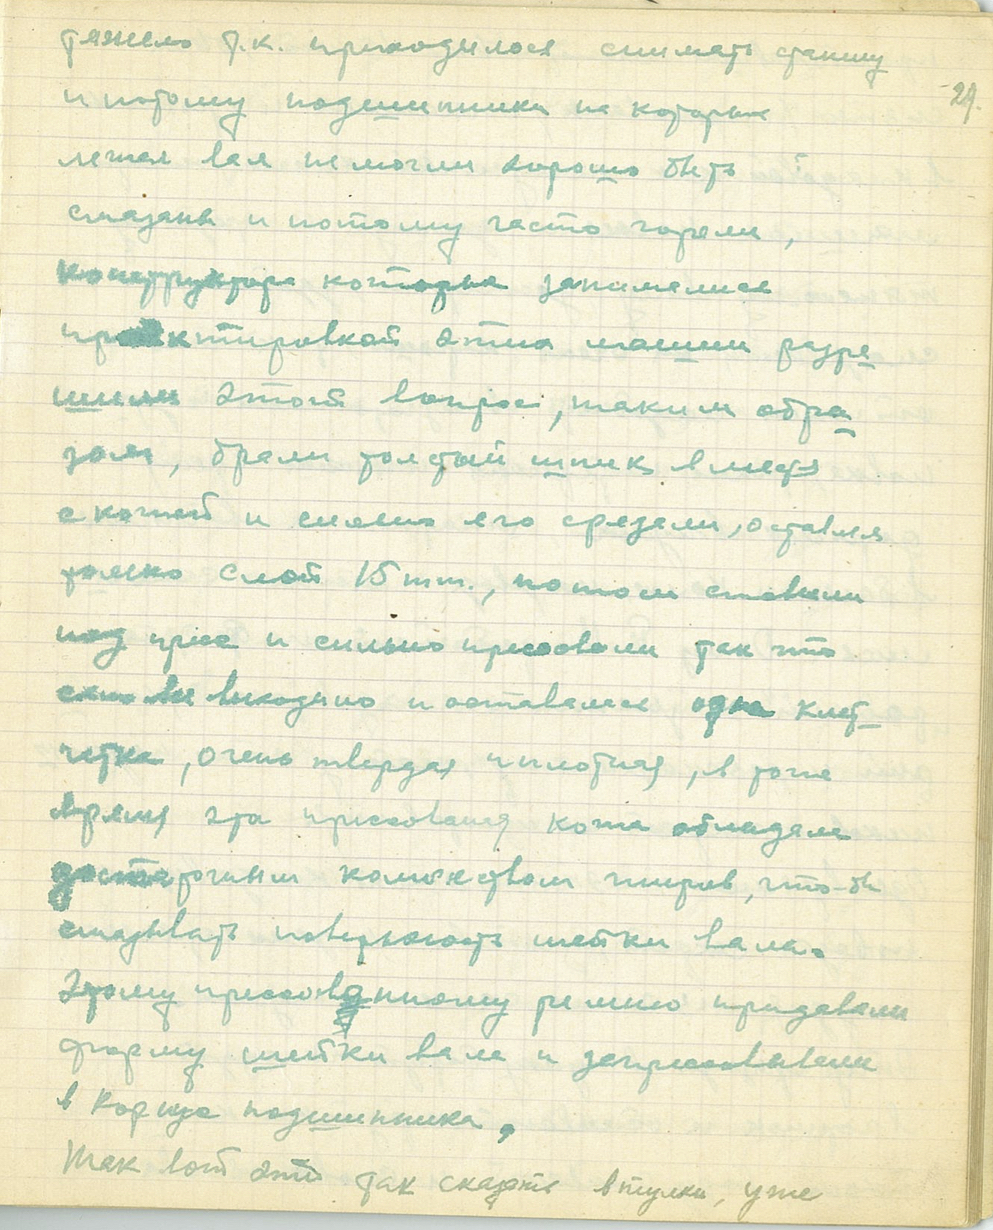 тяжело т.к. приходилося снимать станину
29.
и потому подшипники на которых
лежал вал не могли хорошо быть
смазаны и потому часто горели,
Конструктора которые занимались
проэктировкой этих машин разре
шили этот вопрос, таким обра
зом, брали толстый шпик вместе
с кожей и сколько его срезали, оставляя
только слой 15 mm., потом ставили
под прес и сильно пресовали так что
выходило и оставалась одна клет
чатка, очень твердая и плотная, в тоже
время эта прессованая кожа обладала
достаточным количеством жиров, что-бы
смазывать поверхность шейки вала.
Этому прессованному ремню придавали
форму шейки вала и запрессовывали
в корпус подшипника,
Так вот эти так сказать втулки, уже